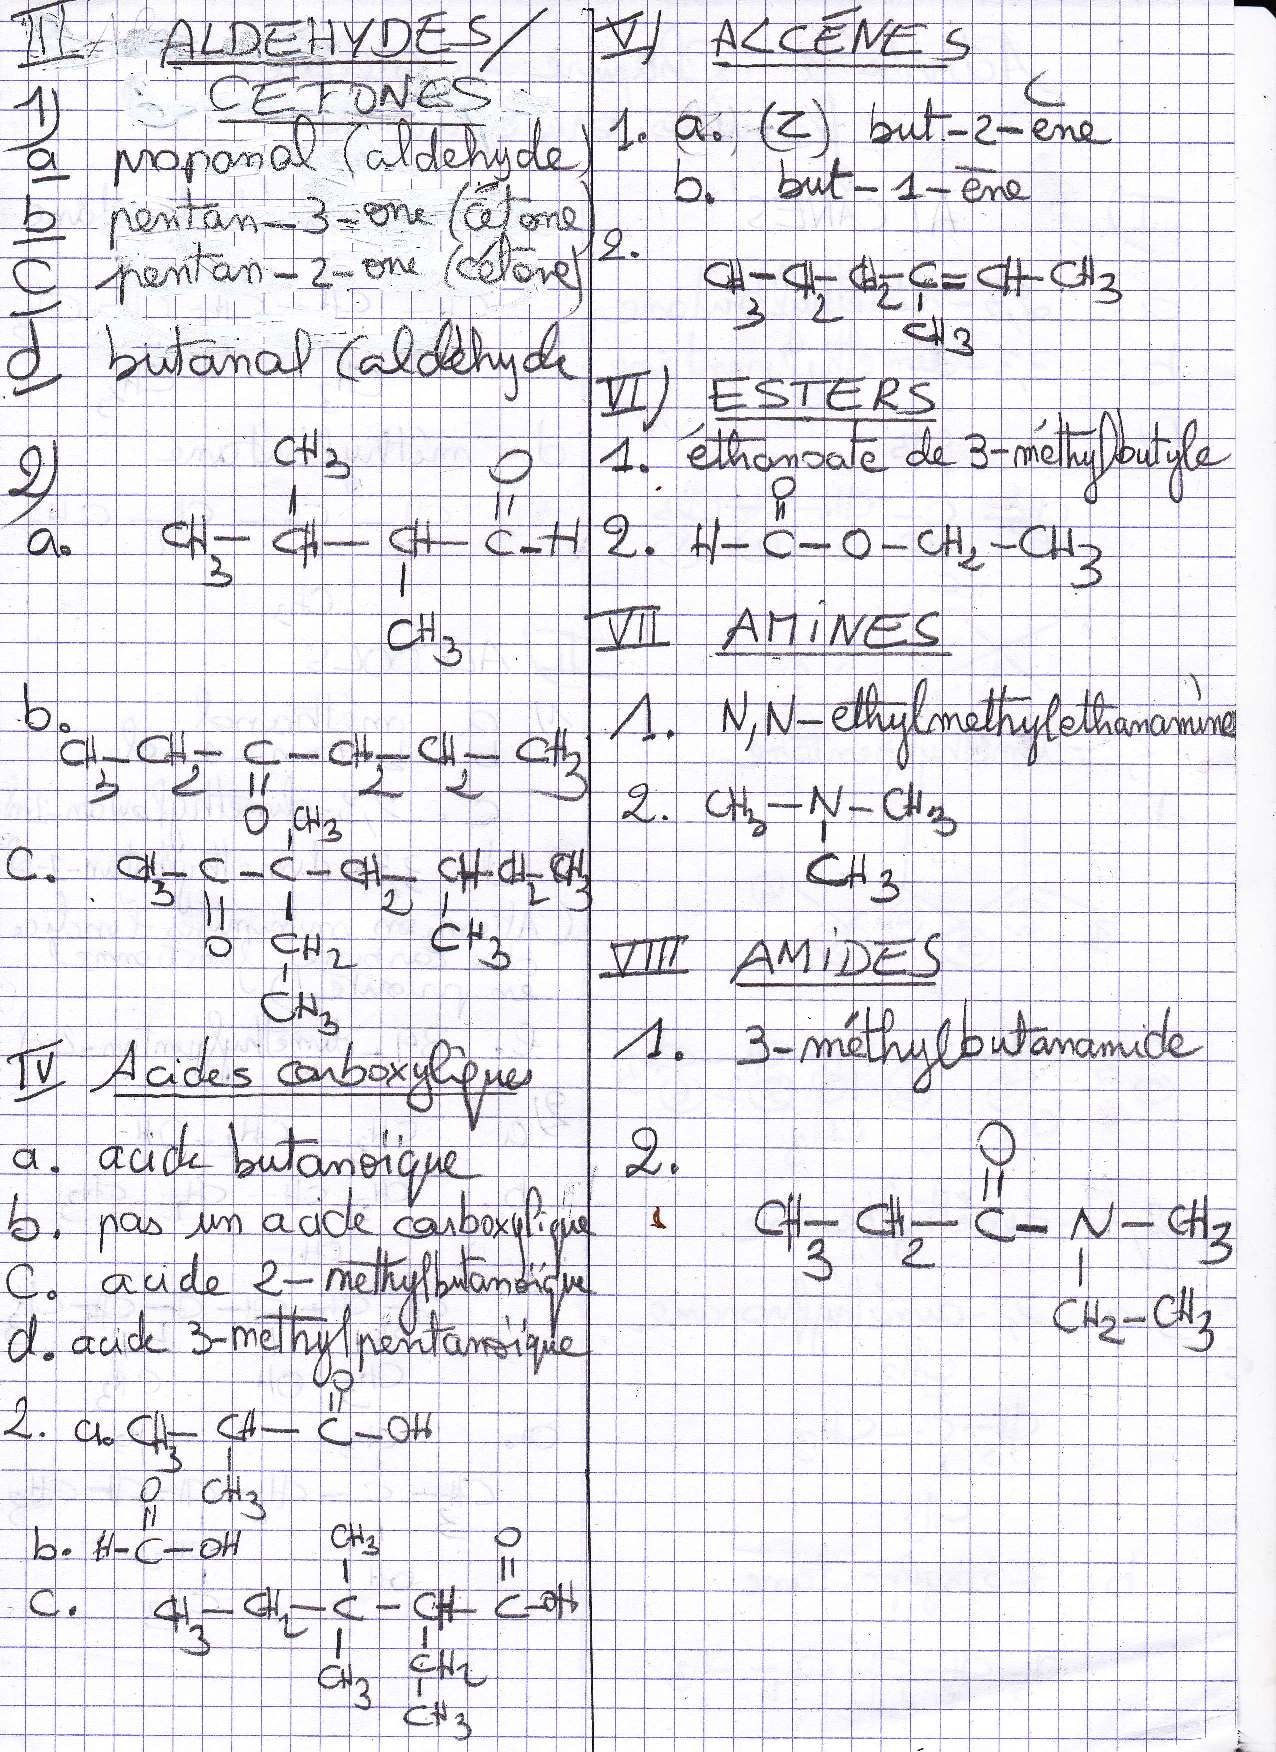 III ALDEHYDES/
CETONES
1)
a propanal (aldehyde)
b pentan-3-one (cétone)
c pentan-2-one (cétone)
d butanal (aldéhyde
2)
CH3 O
a. CH3-CH-CH-C-H
CH3
b.
CH3-CH2-C-CH2-CH2-CH3
O CH3
c. CH3-C-C-CH2-CH-CH2-CH3
O CH2 CH3
CH3
IV Acides carboxyliques
a. acide butanoïque
b. pas un acide carboxylique
c. acide 2-methylbutanoïque
d. acide 3-methylpentanoïque
O
2. a. CH3-CH-C-OH
CH3
O
b. H-C-OH
CH3 O
c. CH3-CH2-C-CH-C-OH
CH3 CH2
CH3
V) ALCÉNES
1. a. (Z) but-2-ene
b. but-1-ène
2.
CH3-CH2-CH2-C=CH-CH3
CH3
VI) ESTERS
1. éthanoate de 3-méthylbutyle
O
2. H-C-O-CH2-CH3
VII AMINES
1. N,N-ethylmethylethanamine
2. CH3-N-CH3
CH3
VIII AMIDES
1. 3-méthylbutanamide
2.
O
CH3-CH2-C-N-CH3
CH2-CH3